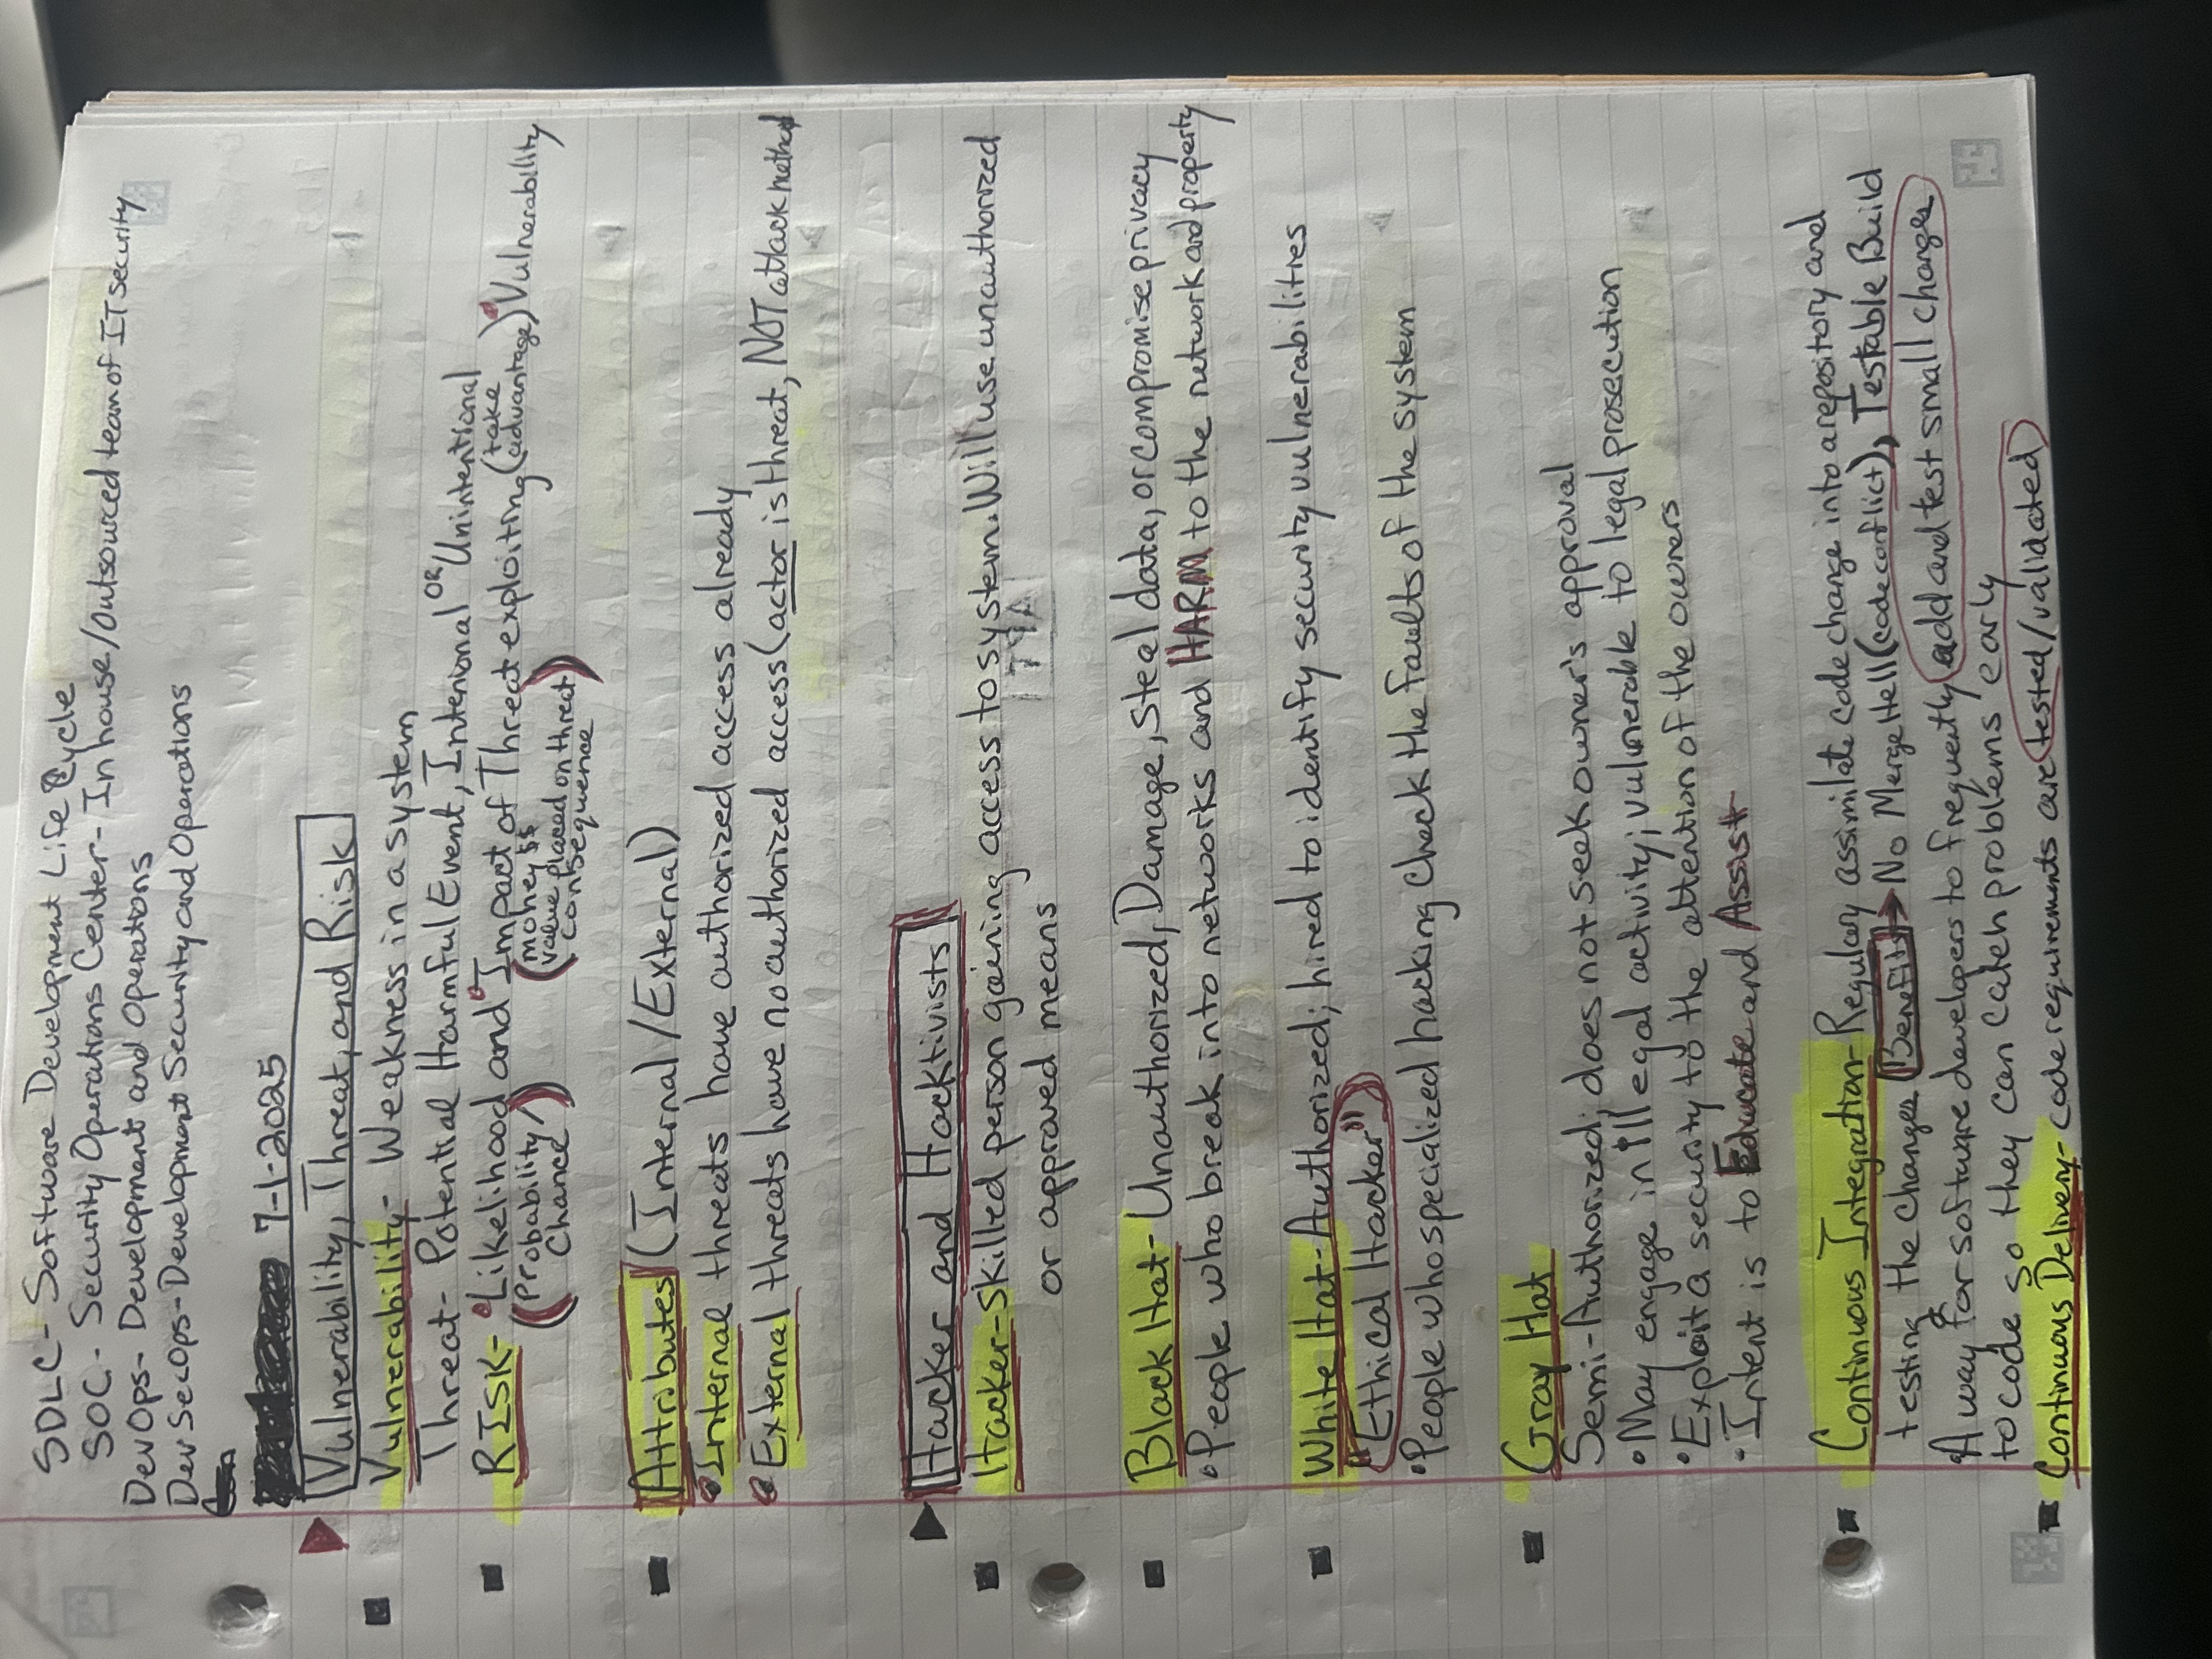 SDLC - Software Development Life Cycle
SOC - Security Operations Center - In house/outsourced team of IT security
DevOps - Development and Operations
DevSecOps - Development Security and Operations
7-1-2025
Vulnerability, Threat, and Risk
Vulnerability - Weakness in a system
Threat - Potential Harmful Event, Intenional OR Unintentional
RISK - •Likelihood and •Impact of Threat exploiting (take advantage) •Vulnerability
(Probability/ Chance) (money $$ value placed on threat consequence)
Attributes (Internal/External)
•Internal threats have authorized access already
•External threats have no authorized access (actor is threat, NOT attack method
Hacker and Hacktivists
Hacker - Skilled person gaining access to system. Will use unauthorized
or approved means
Black Hat - Unauthorized, Damage, steal data, or compromise privacy
•People who break into networks and HARM to the network and property
White Hat - Authorized; hired to identify security vulnerabilities
"Ethical Hacker"
•People who specialized hacking check the faults of the system
Gray Hat
Semi-Authorized; does not seek owner's approval
•May engage in illegal activity; vulnerable to legal prosecution
•Exploit a security to the attention of the owners
-Intent is to Educate and Assist
Continuous Integration - Regulary assimilate code change into a repository and
testing the changes Benefits → No Merge Hell (code conflict), Testable Build
•A way for software developers to frequently add and test small changes
to code so they can catch problems early
Continuous Delivery - code requirements are tested/validated